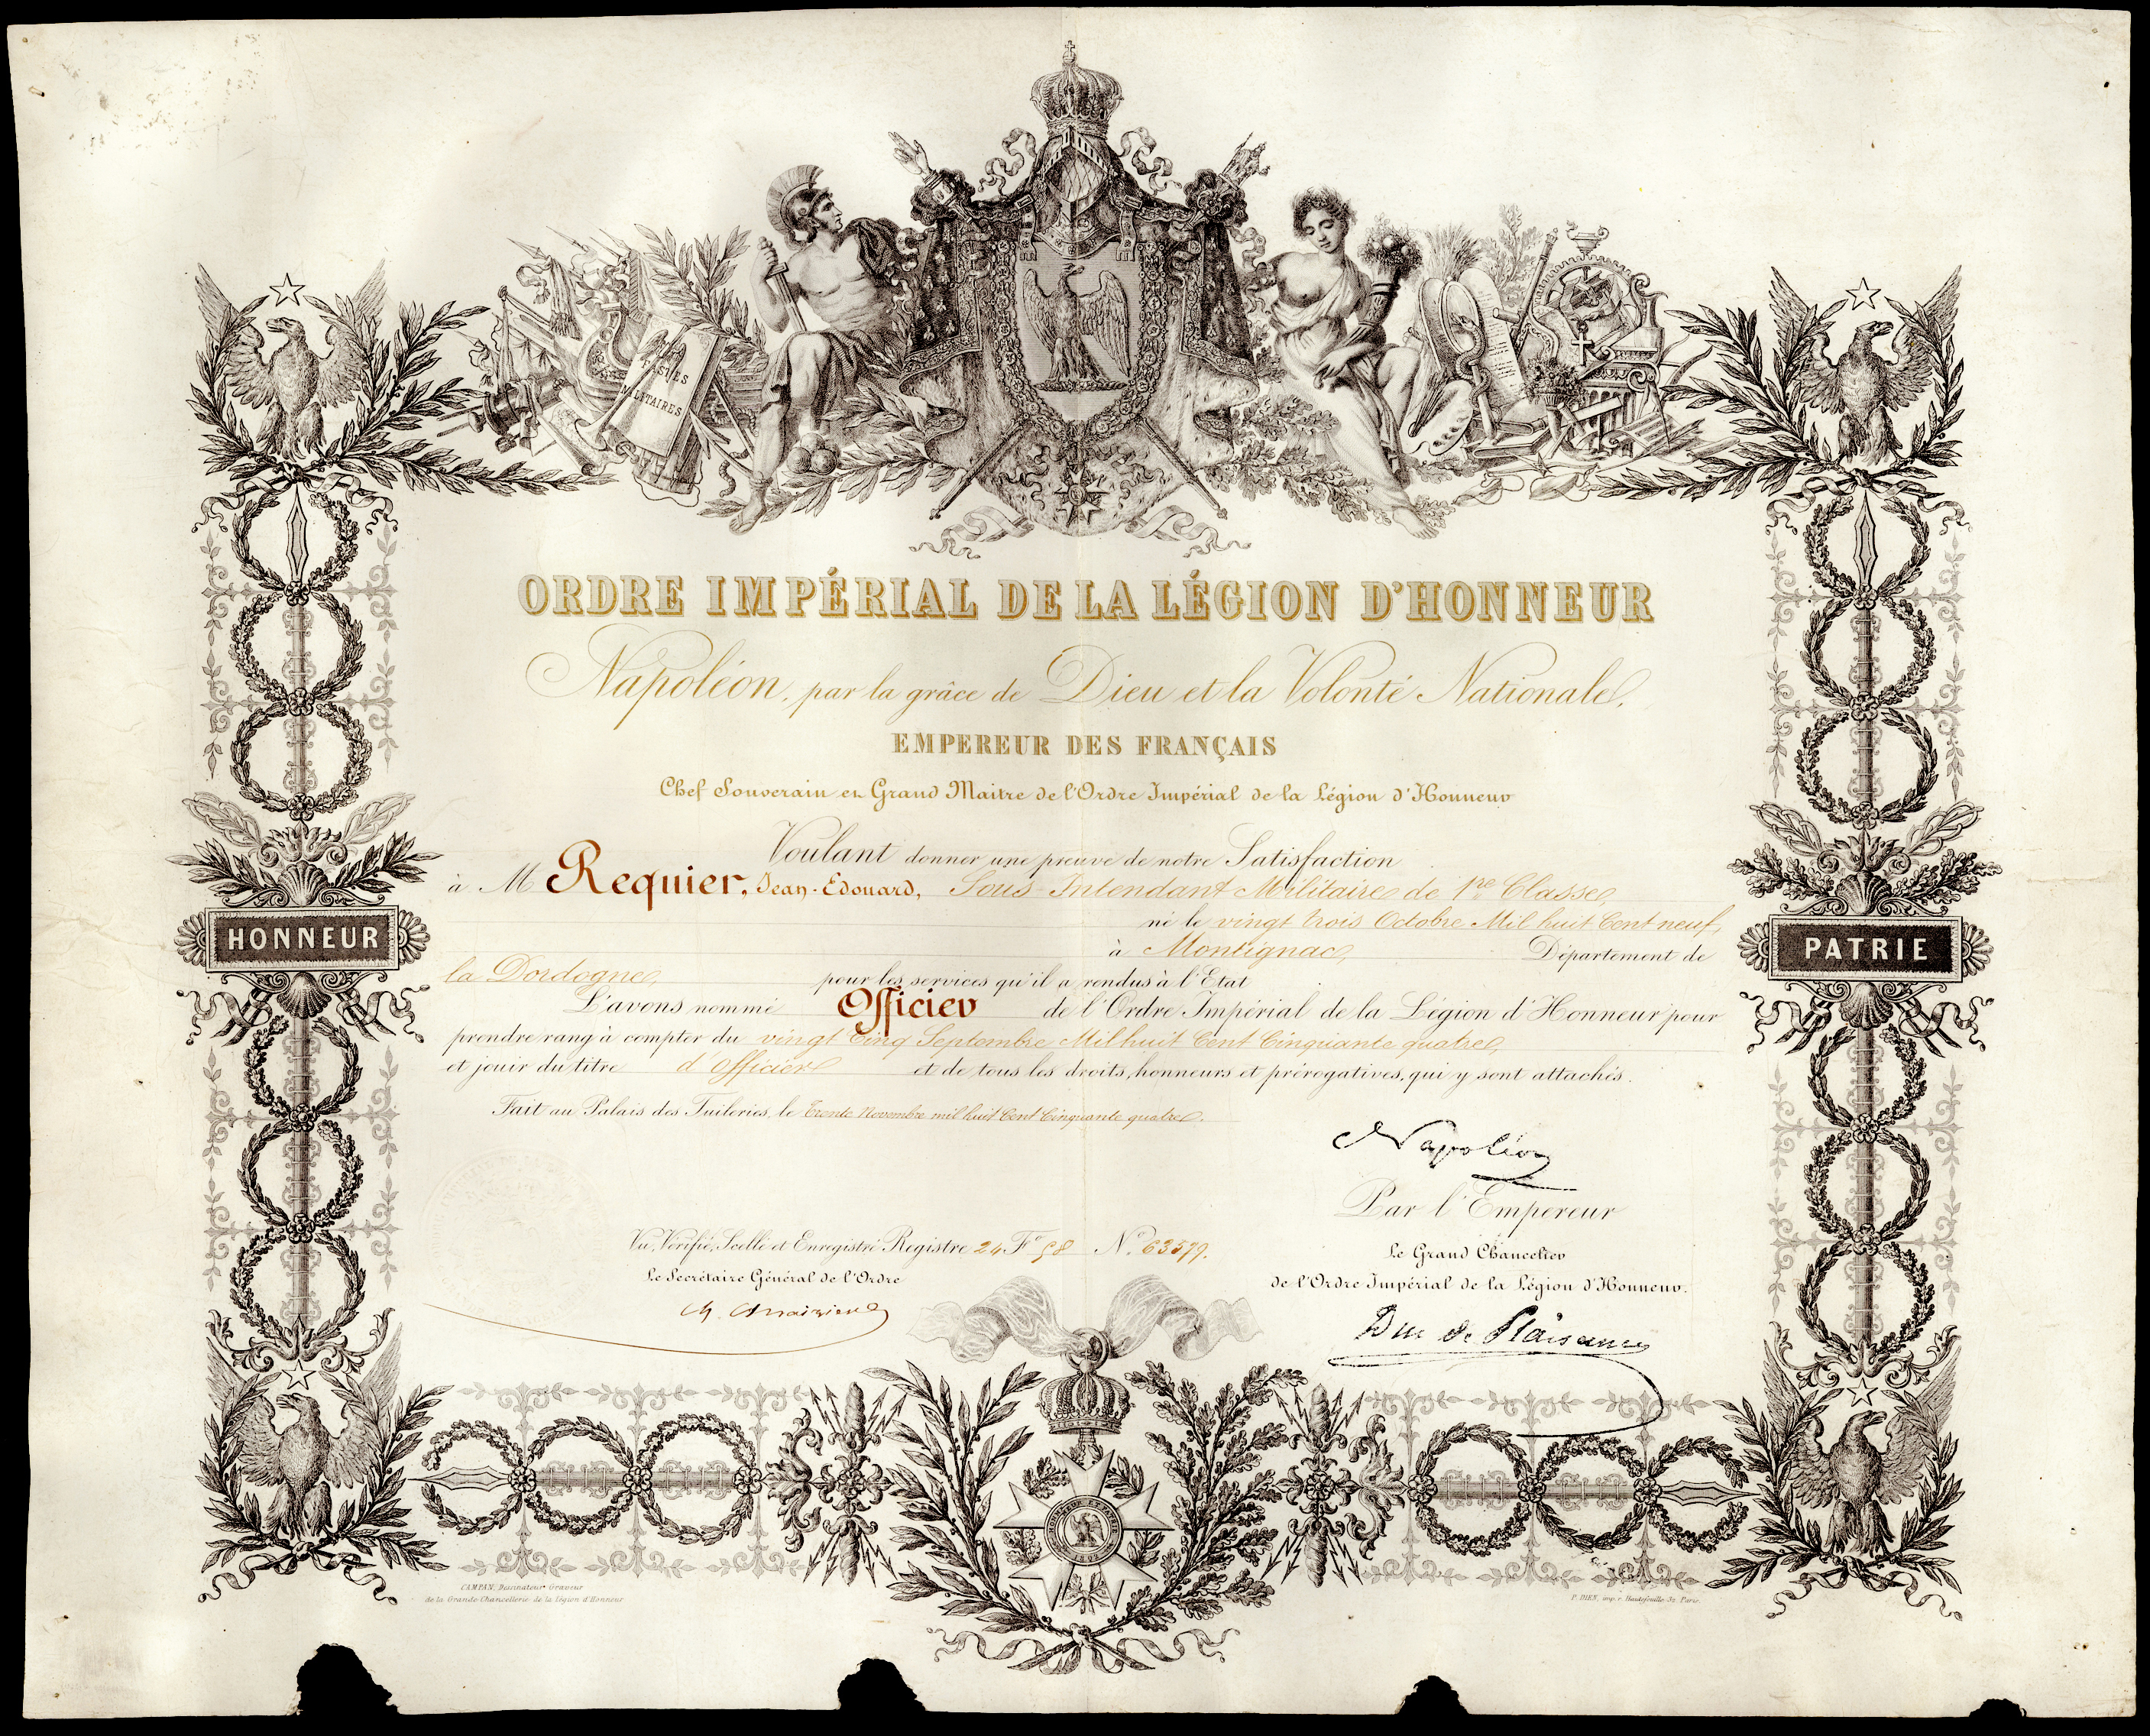 FASTES
MILITAIRES
ORDRE IMPÉRIAL DE LA LÉGION D'HONNEUR
Napoléon, par la grâce de Dieu et la Volonté Nationale,
EMPEREUR DES FRANÇAIS
Chef Souverain et Grand Maitre de l'Ordre Impérial de la Légion d'Honneur
Voulant donner une preuve de notre Satisfaction
à M Requier, Jean-Edouard, Sous-Intendant Militaire de 1re Classe,
né le vingt trois Octobre Mil huit Cent neuf,
HONNEUR
PATRIE
à Montignac, Département de
la Dordogne, pour les services qu'il a rendus à l'Etat
L'avons nommé Officier de l'Ordre Impérial de la Légion d'Honneur pour
prendre rang à compter du vingt Cinq Septembre Mil huit Cent Cinquante quatre,
et jouir du titre d'Officier et de tous les droits, honneurs et prérogatives, qui y sont attachés.
Fait au Palais des Tuileries, le trente Novembre mil huit Cent Cinquante quatre.
Napoléon
Par l'Empereur
Vu, Vérifié, Scellé et Enregistré Registre 24 Fo 58 No 63579.
Le Grand Chancelier
Le Secrétaire Général de l'Ordre
de l'Ordre Impérial de la Légion d'Honneur.
Duc de Plaisance
HONNEUR ET PATRIE
CAMPAN, Dessinateur Graveur
de la Grande Chancellerie de la Légion d'Honneur
P. DIEN, imp. r. Hautefeuille 32 Paris